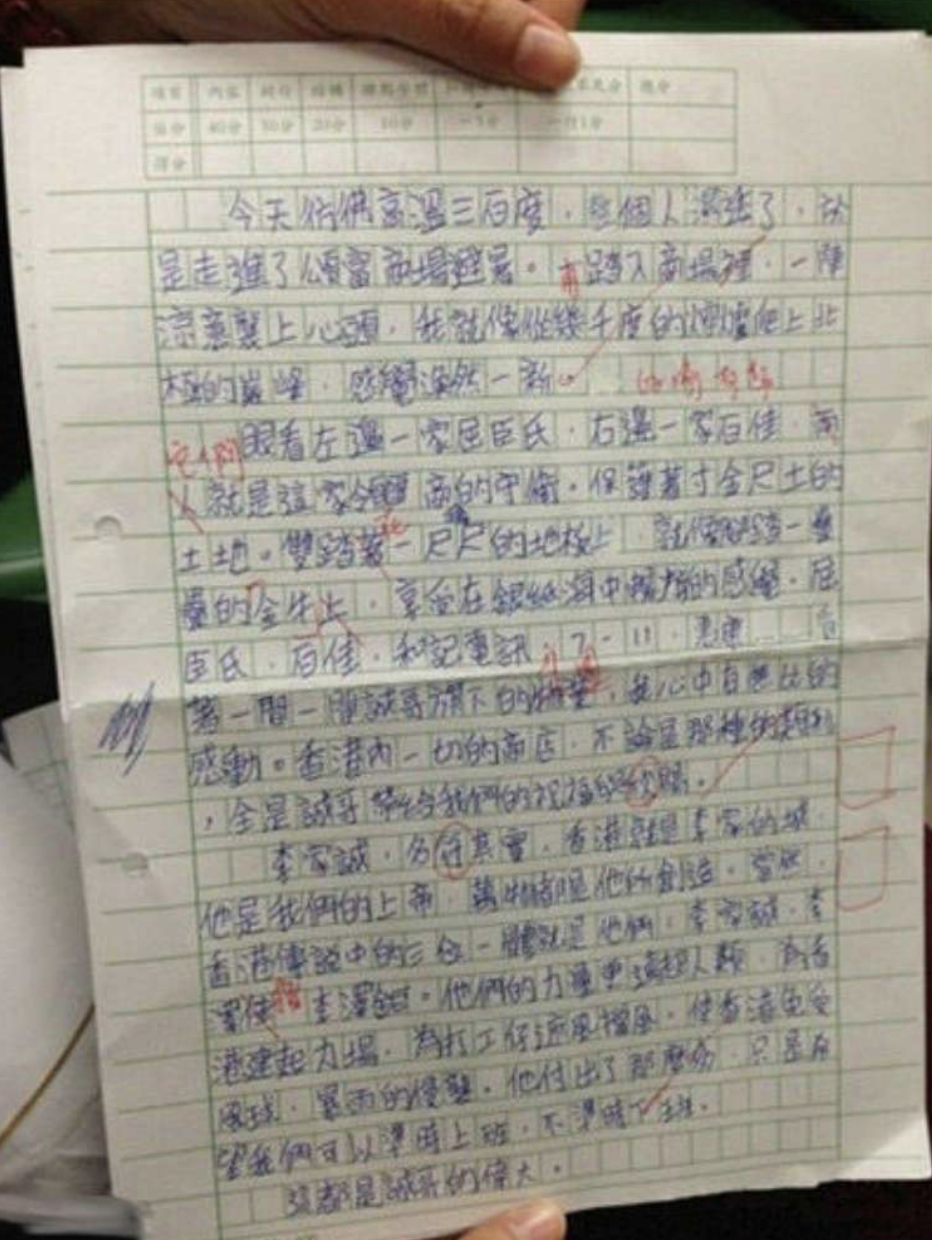 項目 內容 結構 總分
佔分 40分 30分 20分 10分
得分
今天仿佛高溫三百度,整個人溶進了,於
是走進了頌富商場避暑。甫踏入商場裡,一陣
涼意襲上心頭,我就像從幾千度的爬上北
極的巔峰,感覺渙然一新
它們 眼看左邊一家屈臣氏,右邊一家百佳,兩
人就是這家商的守衛,保護著寸金尺土的
土地。雙踏著一尺尺的地板上,就像踏一疊
疊的金牛上,享受在銀紙海中的感覺。屈
臣氏、百佳、和記電訊、7-11、惠康……看
著一間一間誠哥旗下的,我心中自是比的
感動。香港內一切的商店,不論是那種的類別
,全是誠哥帶給我們的祝福與賜。
李家誠,名符其實,香港就是李家的城,
他是我們的上帝,萬物都是他所創造。當然,
香港傳說中的三位一體就是他們,李家誠、李
澤楷 李澤鉅。他們的力量更遠超人類,為香
港建起力場,為打工仔遮風擋風,使香港免受
風球、暴雨的侵襲。他付出了那麼多,只是希
望我們可以準時上班,不準時下班。
這都是誠哥的偉大。